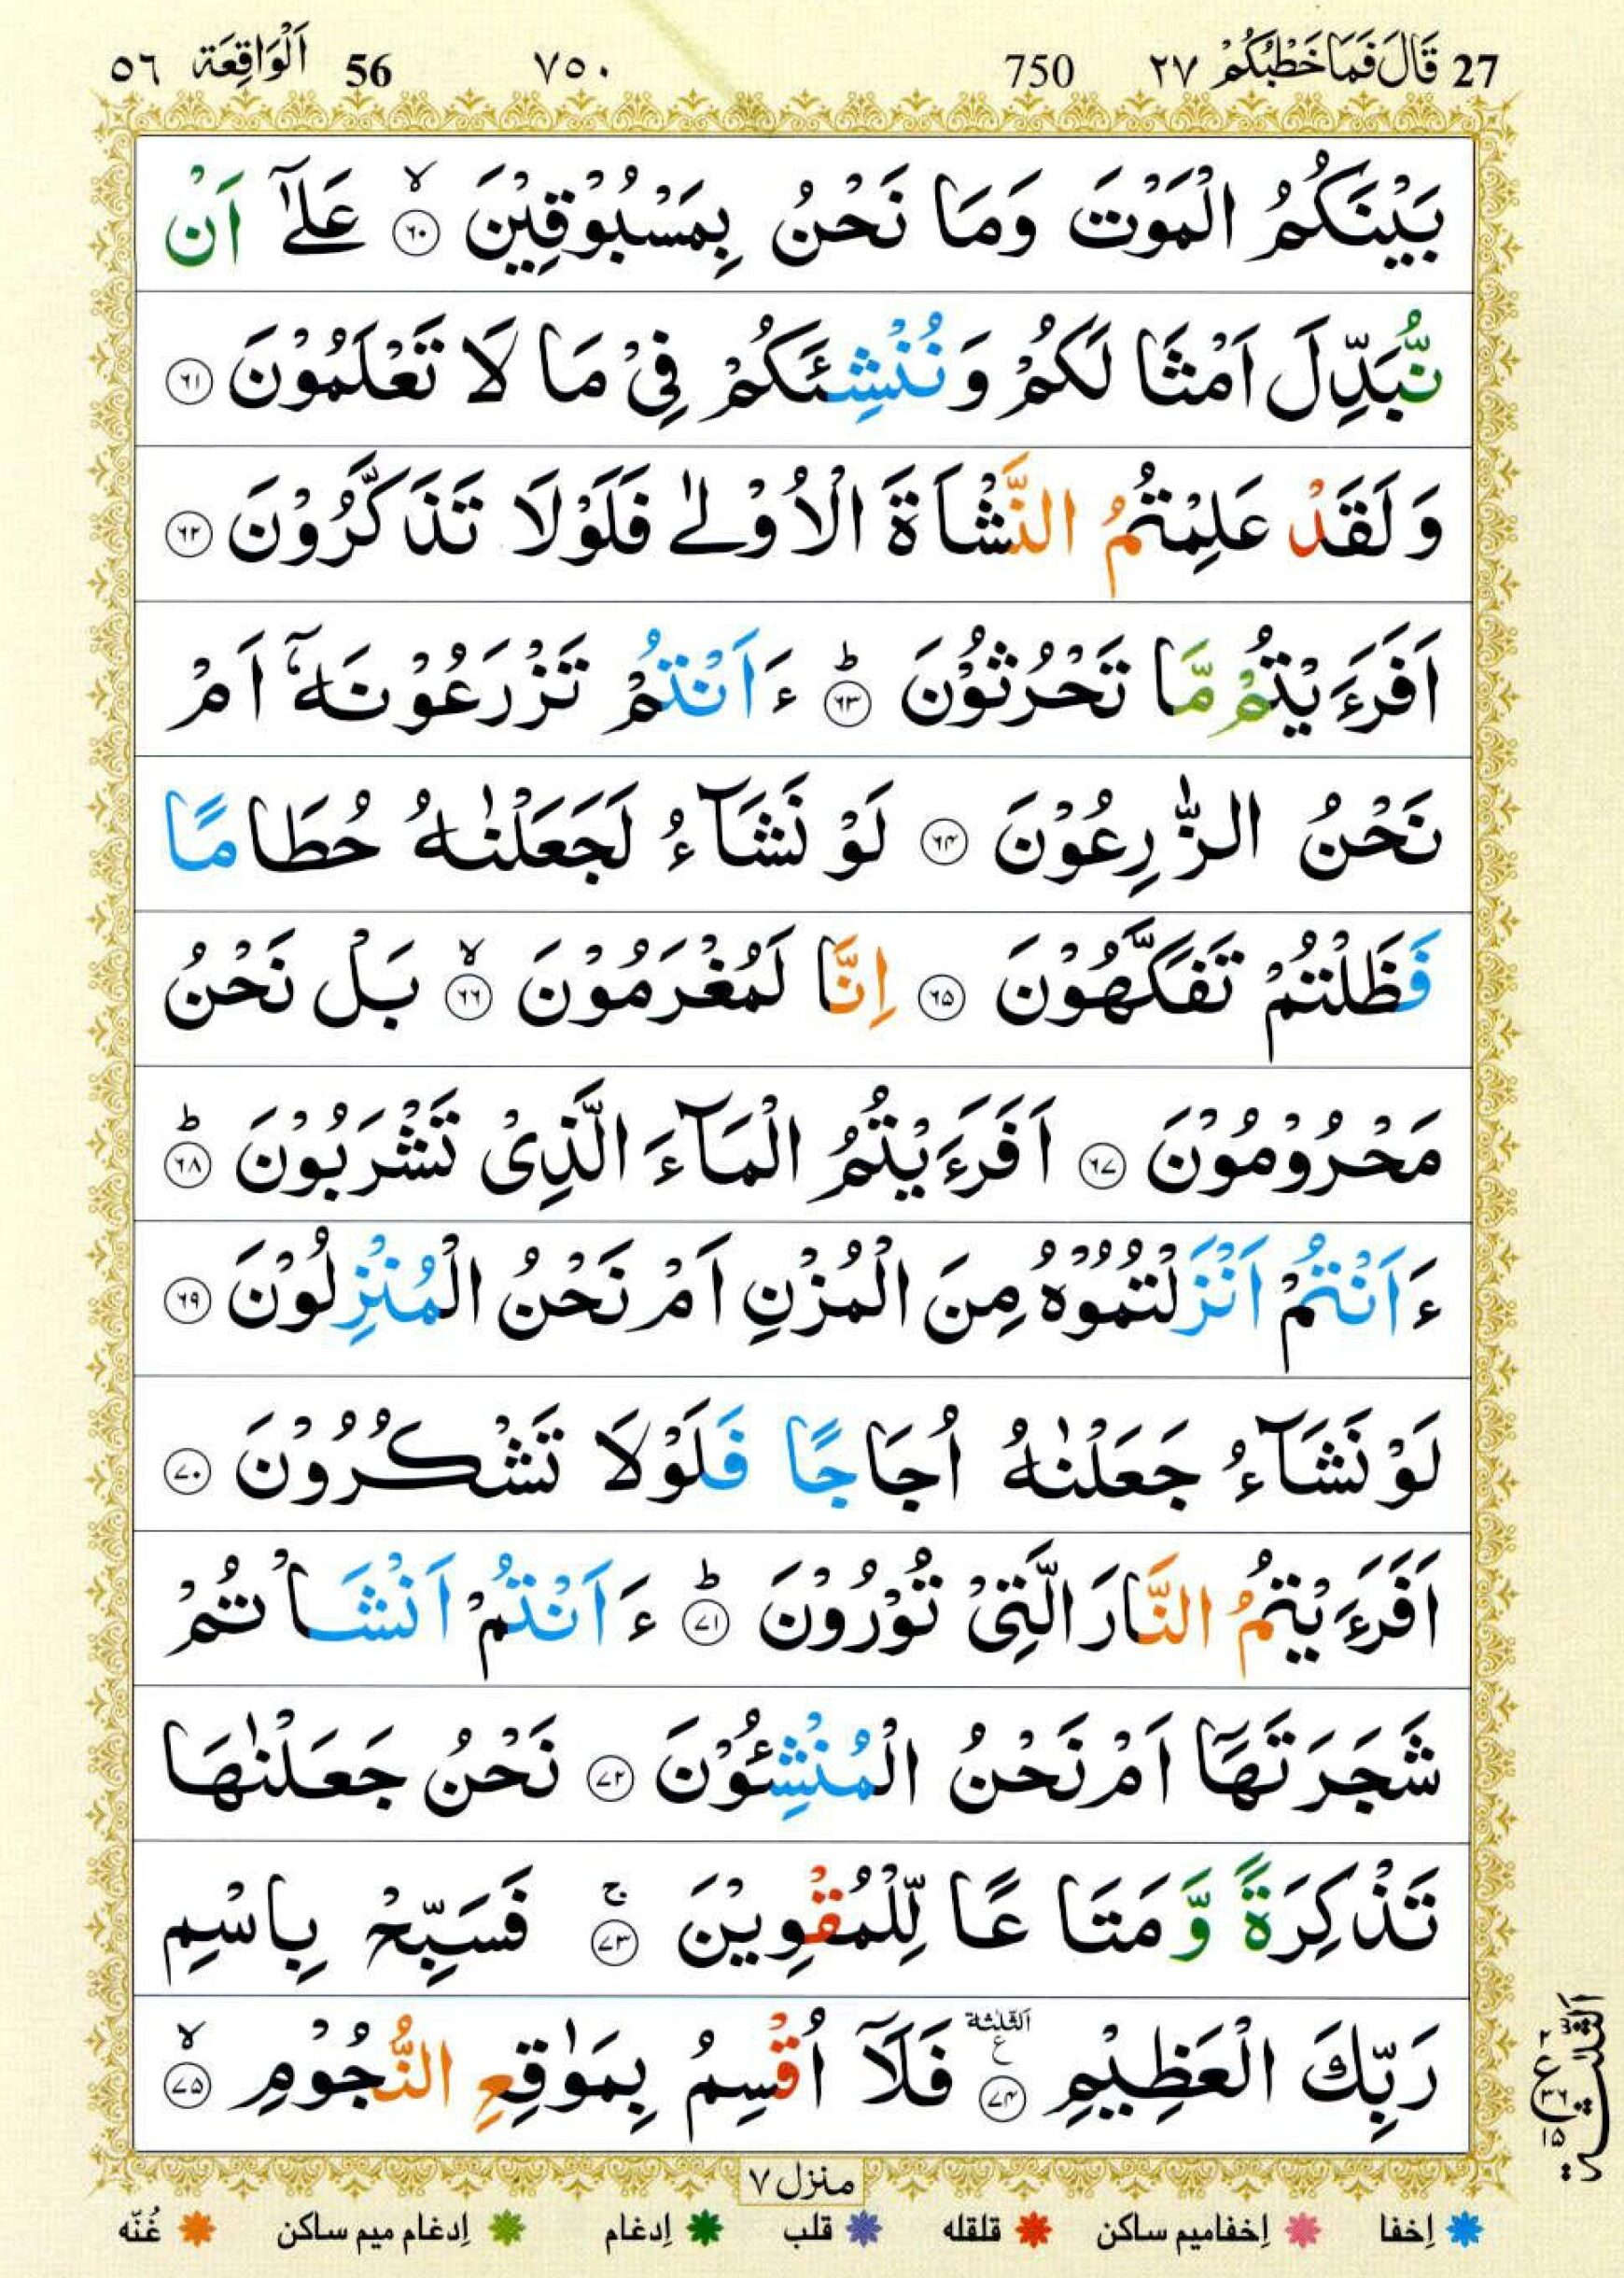 27 قَالَ فَمَا خَطْبُكُمْ ٢٧ 750 ٧٥٠ 56 اَلْوَاقِعَة ٥٦
بَيْنَكُمُ الْمَوْتَ وَمَا نَحْنُ بِمَسْبُوْقِيْنَ ۙ﴿۶۰﴾ عَلٰٓى اَنْ
نُّبَدِّلَ اَمْثَا لَكُمْ وَنُنْشِئَكُمْ فِىْ مَا لَا تَعْلَمُوْنَ ﴿۶۱﴾
وَلَقَدْ عَلِمْتُمُ النَّشْاَةَ الْاُوْلٰى فَلَوْلَا تَذَكَّرُوْنَ ﴿۶۲﴾
اَفَرَءَيْتُمْ مَّا تَحْرُثُوْنَ ؕ﴿۶۳﴾ ءَاَنْتُمْ تَزْرَعُوْنَهٗۤ اَمْ
نَحْنُ الزّٰرِعُوْنَ ﴿۶۴﴾ لَوْ نَشَآءُ لَجَعَلْنٰهُ حُطَامًا
فَظَلْتُمْ تَفَكَّهُوْنَ ﴿۶۵﴾ اِنَّا لَمُغْرَمُوْنَ ۙ﴿۶۶﴾ بَلْ نَحْنُ
مَحْرُوْمُوْنَ ﴿۶۷﴾ اَفَرَءَيْتُمُ الْمَآءَ الَّذِىْ تَشْرَبُوْنَ ؕ﴿۶۸﴾
ءَاَنْتُمْ اَنْزَلْتُمُوْهُ مِنَ الْمُزْنِ اَمْ نَحْنُ الْمُنْزِلُوْنَ ﴿۶۹﴾
لَوْ نَشَآءُ جَعَلْنٰهُ اُجَاجًا فَلَوْلَا تَشْكُرُوْنَ ﴿۷۰﴾
اَفَرَءَيْتُمُ النَّارَ الَّتِىْ تُوْرُوْنَ ؕ﴿۷۱﴾ ءَاَنْتُمْ اَنْشَاْتُمْ
شَجَرَتَهَاۤ اَمْ نَحْنُ الْمُنْشِئُوْنَ ﴿۷۲﴾ نَحْنُ جَعَلْنٰهَا
تَذْكِرَةً وَّمَتَا عًا لِّلْمُقْوِيْنَ ۚ﴿۷۳﴾ فَسَبِّحْ بِاسْمِ
رَبِّكَ الْعَظِيْمِ الثلثة ع ﴿۷۴﴾ فَلَاۤ اُقْسِمُ بِمَوٰقِعِ النُّجُوْمِ ۙ﴿۷۵﴾
اَلثَّلٰثَة ٢ ع ٣٦ ١٥
منزل ٧
اِخفا اِخفامیم ساکن قلقله قلب اِدغام اِدغام میم ساکن غُنّه